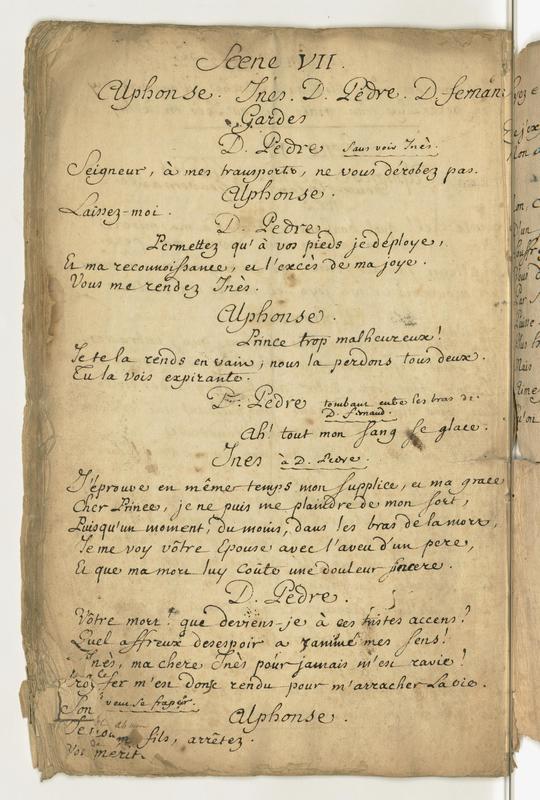 Scene VII.
Alphonse. Inès. D. Pédre. D. fernan
Gardes
D. Pedre sans voir Inès.
Seigneur, à mes transports, ne vous dérobez pas.
Alphonse.
Laissez-moi.
D. Pedre
Permettez qu'à vos pieds je déploye,
Et ma reconnoissance, et l'excès de ma joye.
Vous me rendez Inès.
Alphonse.
Prince trop malheureux!
Je te la rends en vain; nous la perdons tous deux.
Tu la vois expirante.
D. Pedre tombant entre les bras de
D. fernand.
Ah! tout mon sang se glace.
Ines à D. Pedre.
J'éprouve en même temps mon supplice, et ma grace
Cher Prince, je ne puis me plaindre de mon sort,
Puisqu'un moment, du moins, dans les bras de la mort,
Je me voy vôtre Epouse avec l'aveu d'un pere,
Et que ma mort luy coûte une douleur sincere.
D. Pédre.
Vôtre mort? que deviens-je à ces tristes accens?
Quel affreux desespoir a ranimé mes sens!
Inès, ma chere Inès pour jamais m'est ravie!
fer m'est donc rendu pour m'arracher la vie.
veut se fraper.
Alphonse.
fils, arrêtez.